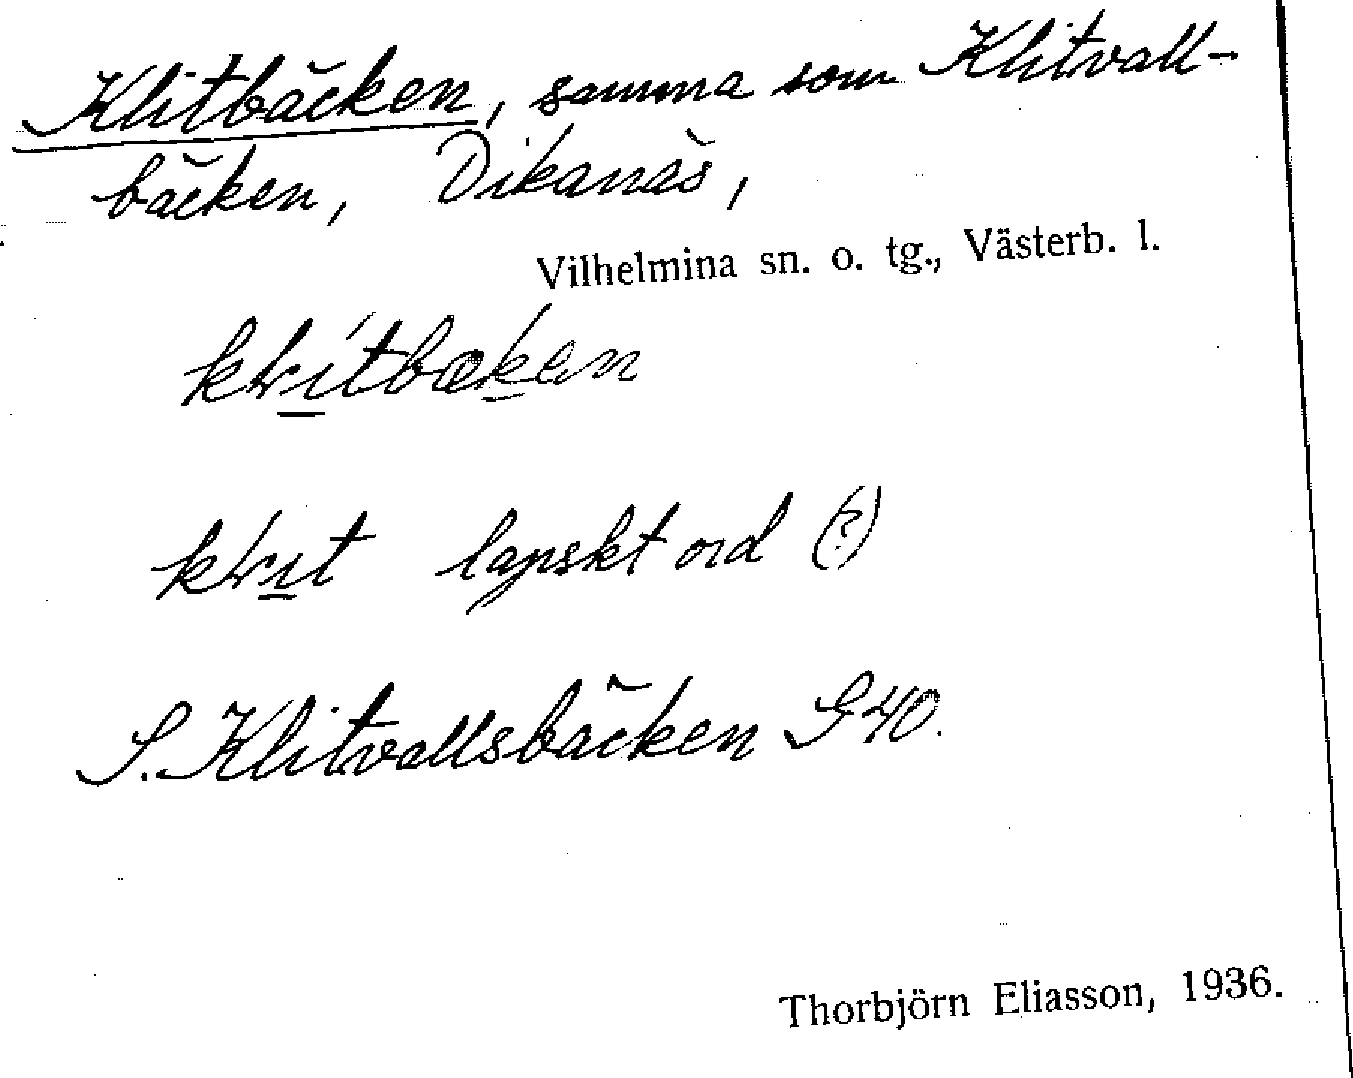 Klitbäcken, samma som Klitvall-
bäcken, Dikanäs,
Vilhelmina sn. o. tg., Västerb. l.
lapskt ord (?)
S. Klitvallsbäcken G40.
Thorbjörn Eliasson, 1936.